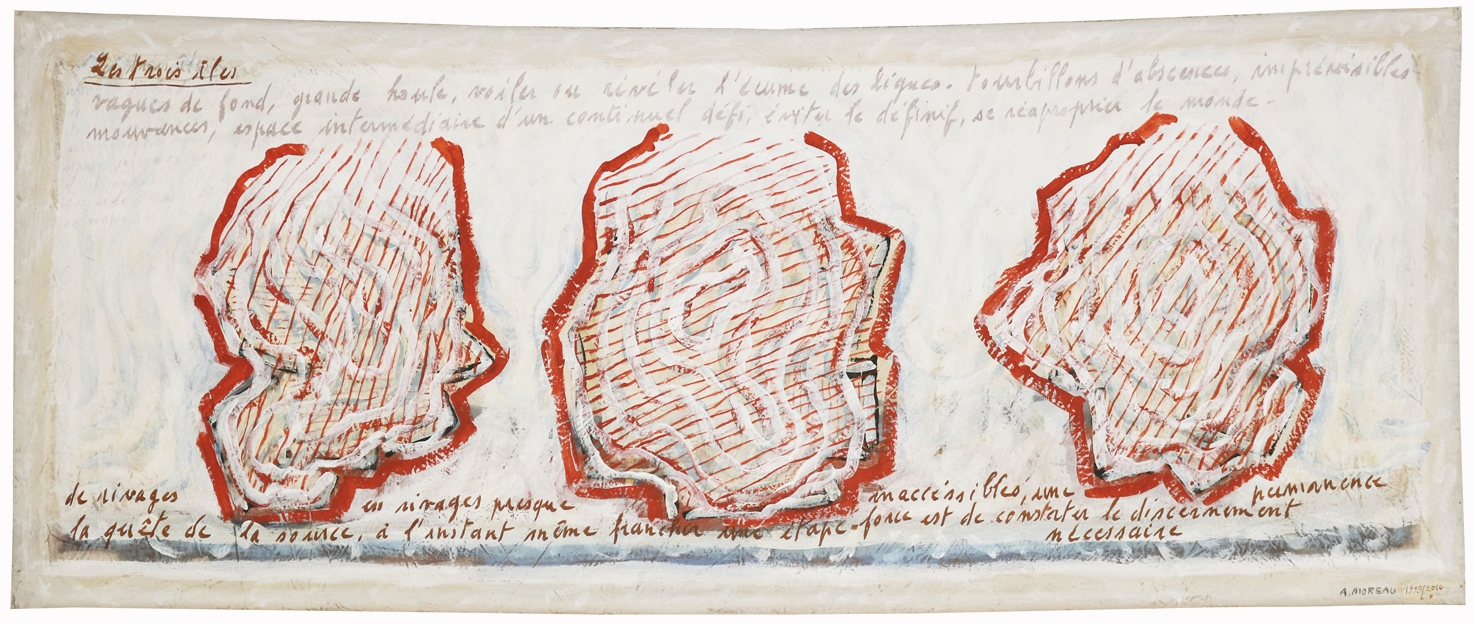 Les trois îles
vagues de fond, grande houle, voiler ou révéler l'écume des lignes. tourbillons d'abscences, imprévisibles
mouvances, espace intermédiaire d'un continuel défi, éviter le définif, se réaproprier le monde.
de rivages en rivages presque inaccéssibles, une permanence
la quête de la source, à l'instant même franchir une étape. force est de constater le discernement
nécessaire
A. MOREAU 1993/2016